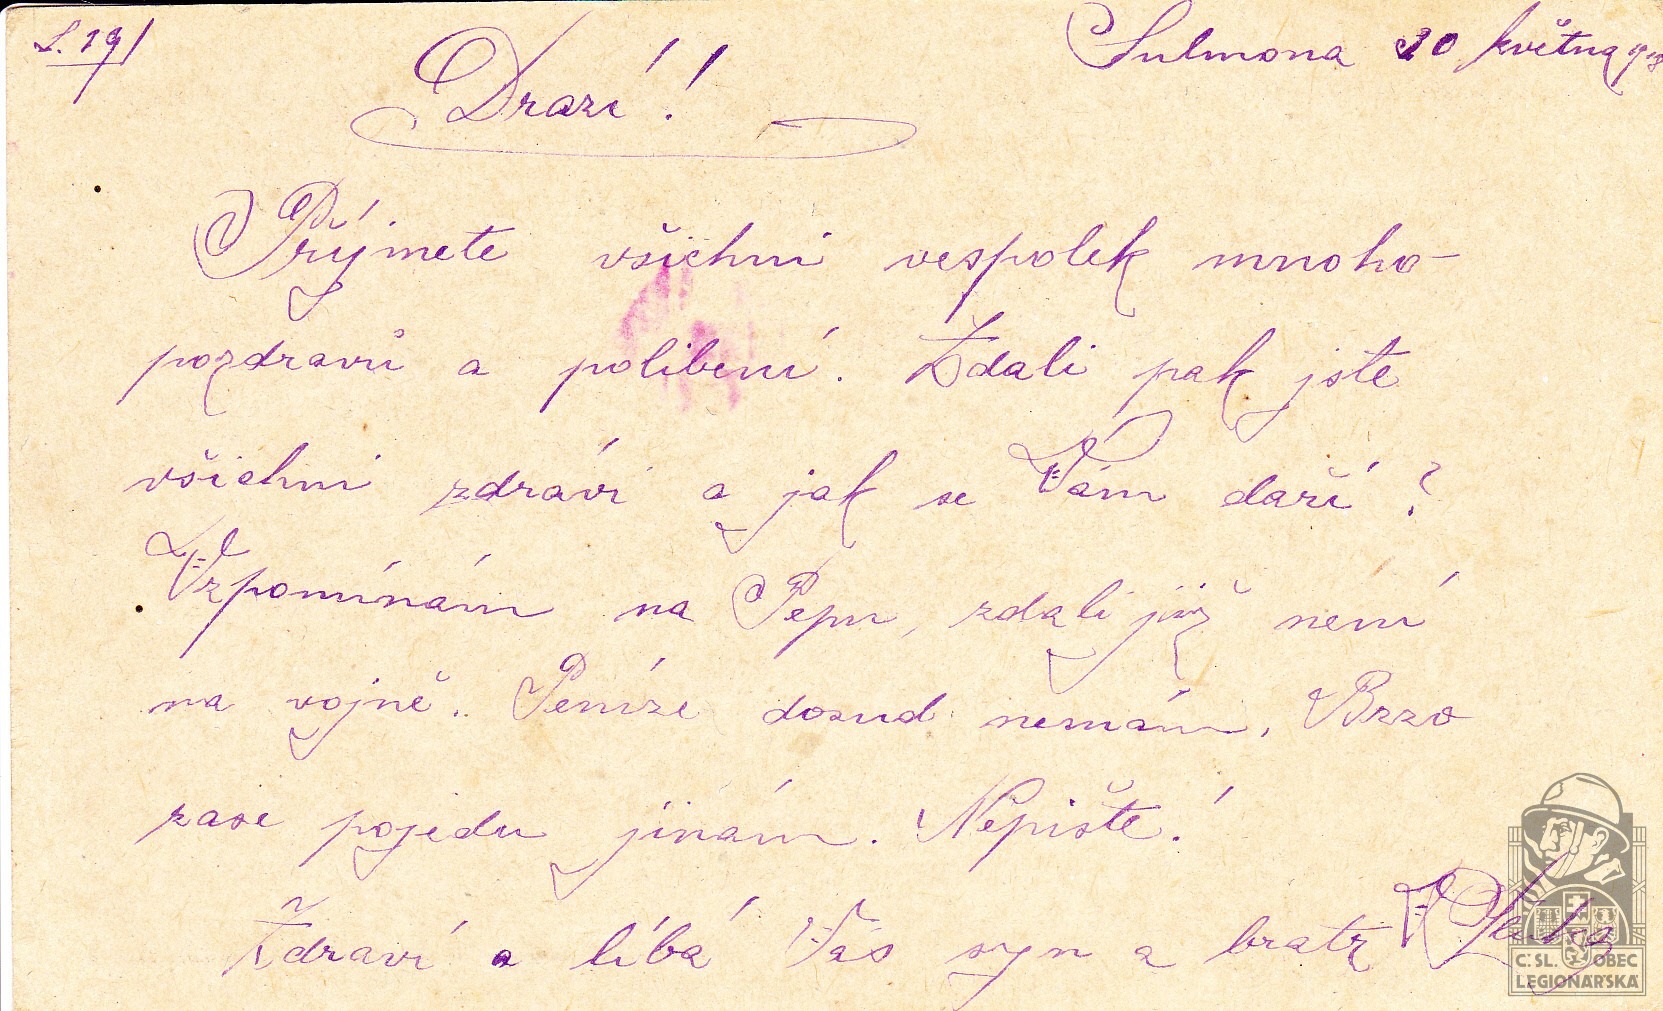 L. 19 Sulmona 20 května 1918
Drazí!!
Přÿmete všichni vespolek mnoho-
pozdravů a políbení. Zdali pak jste
všichni zdrávi a jak se Vám daří?
Vzpomínám na Pepu, zdali již není
na vojně. Peníze dosud nemám. Brzo
zase pojedu jinám. Nepište!
Zdraví a líbá Vás syn a bratr
Č. SL. OBEC
LEGIONÁŘSKÁ